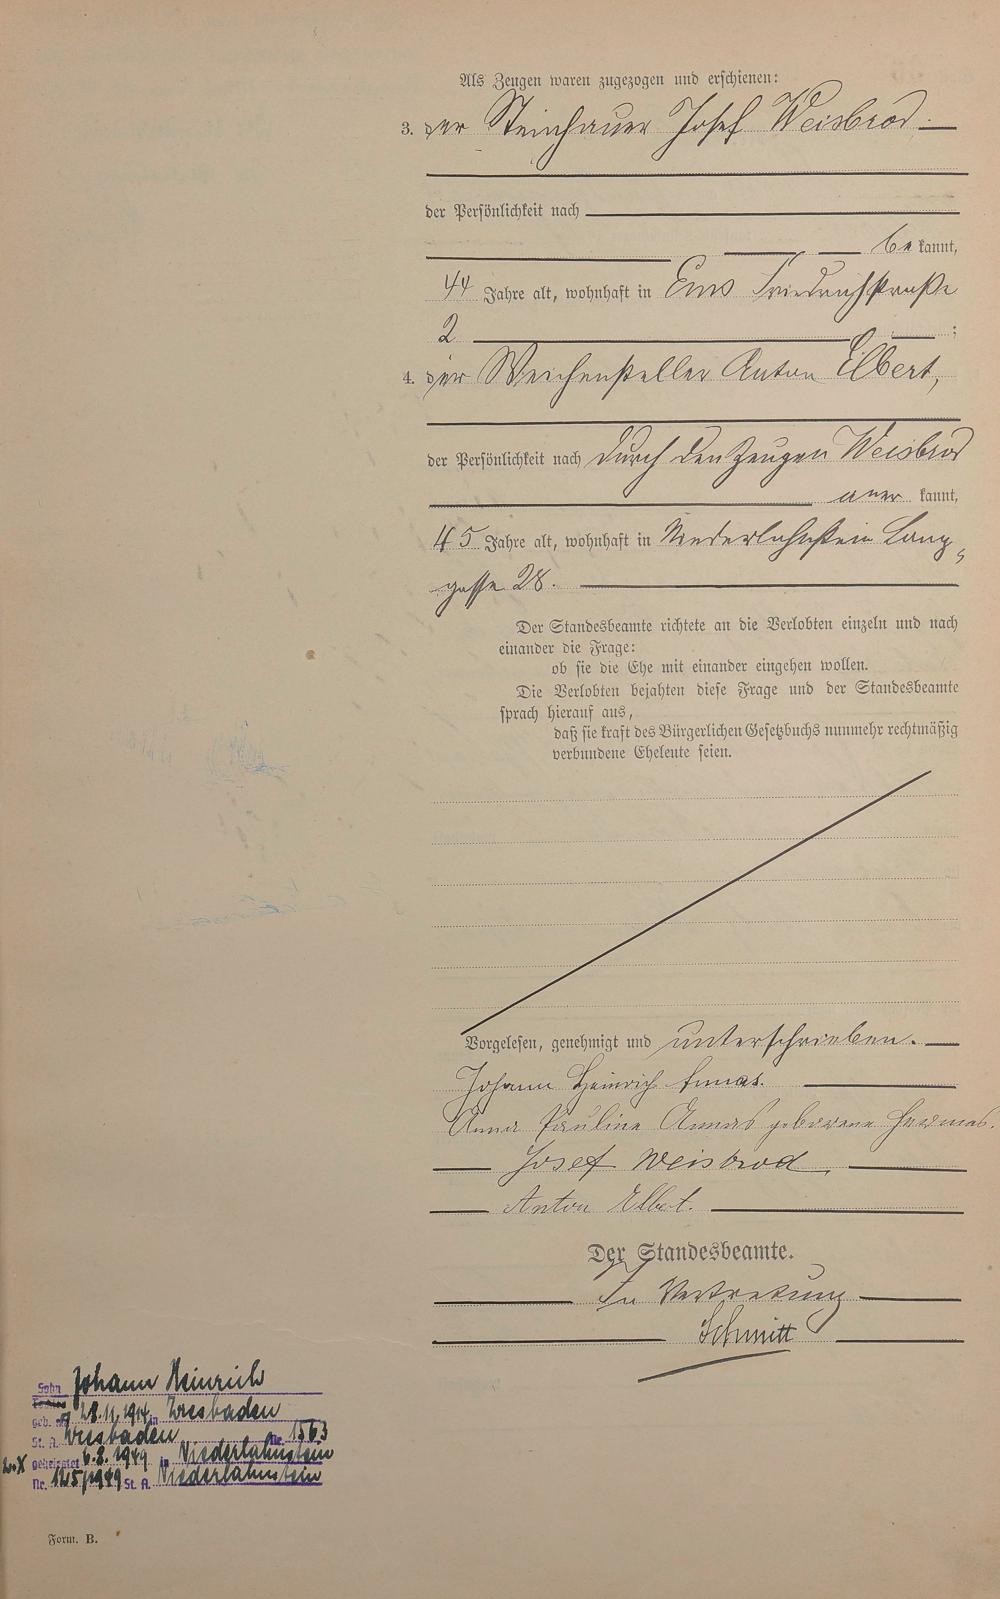 Als Zeugen waren zugezogen und erschienen:
3. der Steinhauer Josef Weisbrod.
der Persönlichkeit nach
be kannt,
44 Jahre alt, wohnhaft in Ems Friedrichstraße
2 ;
4. der Weichensteller Anton Elbert,
der Persönlichkeit nach durch den Zeugen Weisbrod
aner kannt,
45 Jahre alt, wohnhaft in Niederlahnstein Lang=
gasse 28.
Der Standesbeamte richtete an die Verlobten einzeln und nach
einander die Frage:
ob sie die Ehe mit einander eingehen wollen.
Die Verlobten bejahten diese Frage und der Standesbeamte
sprach hierauf aus,
daß sie kraft des Bürgerlichen Gesetzbuchs nunmehr rechtmäßig
verbundene Eheleute seien.
Vorgelesen, genehmigt und unterschrieben.
Johann Heinrich Annas.
Anna Pauline Annas geborene Hermes.
Josef Weisbrod
Anton Elbert.
Der Standesbeamte.
In Vertretung
Schmitt
Sohn Johann Heinrich
geb. 28.11.1914 in Wiesbaden
St. A. Wiesbaden Nr. 1563
geheiratet 6.8.1949 in Niederlahnstein
Nr. 125/1949 St. A. Niederlahnstein
Form. B.